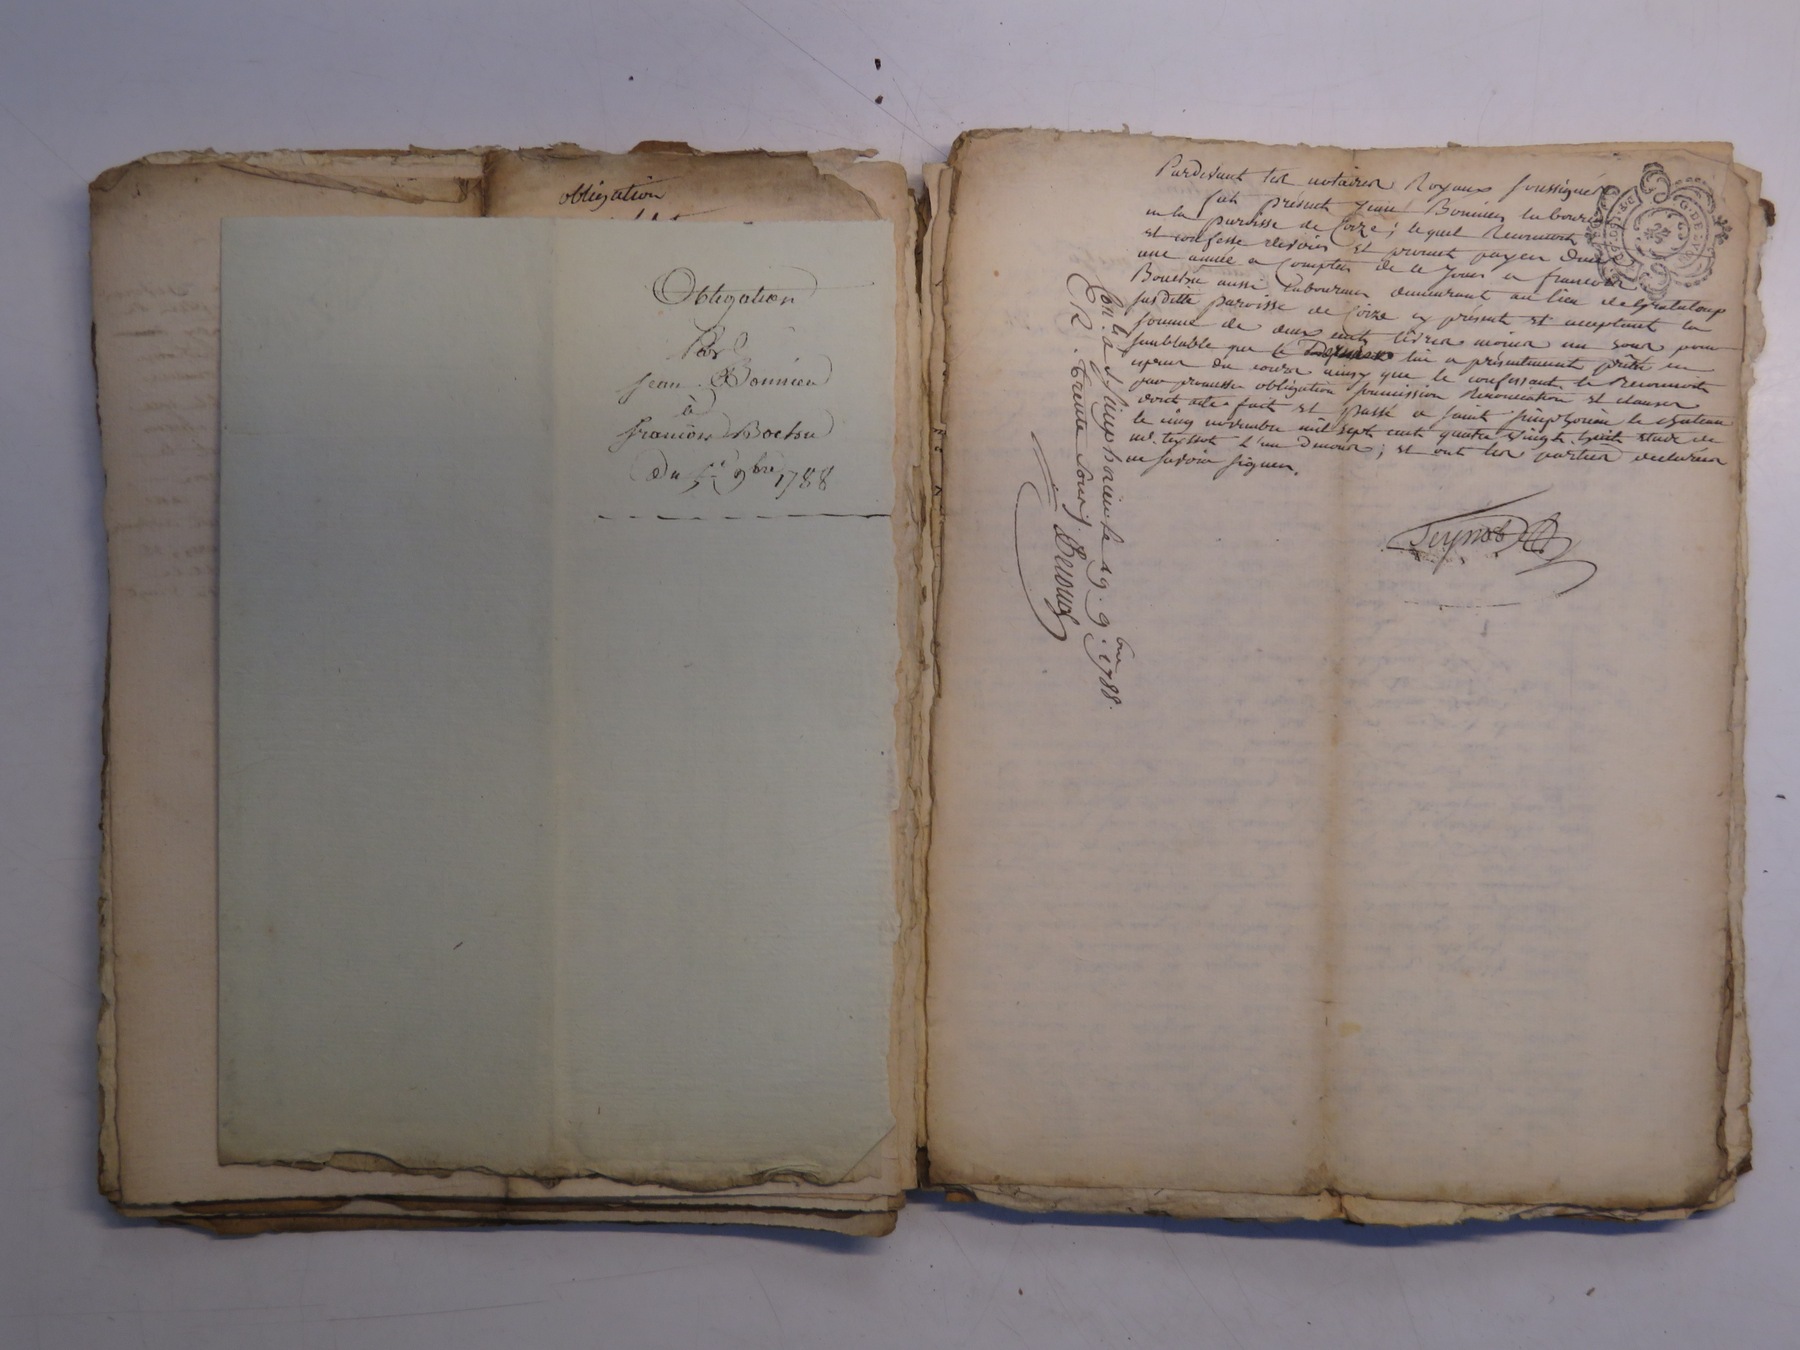 obligation
Obligation
Par
Jean Bonnieu
à
françois Boctou
Du 5e 9bre 1788
Pardevant les notaires Royaux soussignés
fut présent Jean Bonnieu laboureur
en la paroisse de ; lequel Reconnoit
et confesse devoir et promet payer dans
une année a compter de ce jour a françois
aussi laboureur demeurant au lieu de Grataloup
susditte paroisse de cy présent et acceptant la
somme de deux cents livres moins un sour pour
semblable que le lui a présentement prêté en
espece du cours ainsy que le confessant le Reconnoit
par promesse obligation soumission Renonciation et clauses
dont acte fait et passé a saint simphorien le chateau
le cinq novembre mil sept cent quatre vingt huit etude de
me. teyssot l'un d'nous ; et ont les parties declarées
ne savoir signer.
Con.lé a St. simphorien le 19. 9bre. 1788.
R. trente sous